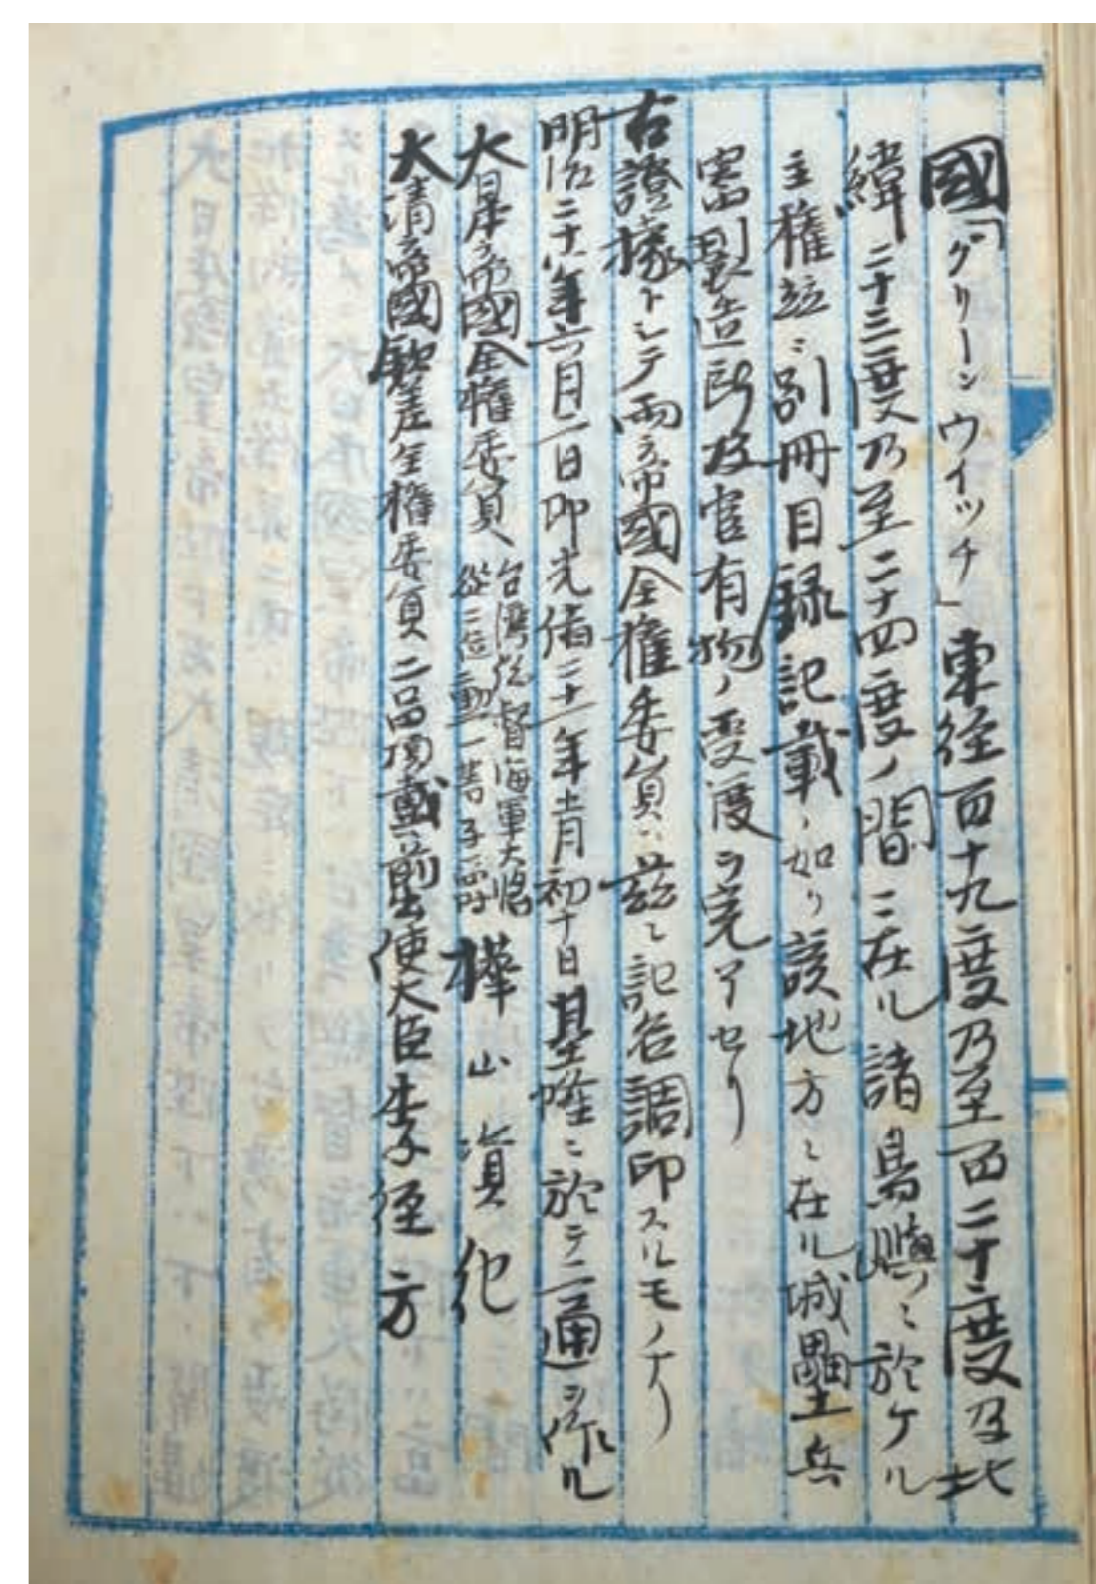 國「グリーンウイッチ」東径百十九度乃至百二十度及北
緯二十三度乃至二十四度ノ間ニ在ル諸島嶼ニ於ケル
主権並ニ別冊目録記載ノ如ク該地方ニ在ル城壘兵
器製造所及官有物ノ受渡ヲ完了セリ
右證據トシテ兩帝國全権委員ハ茲ニ記名調印スルモノナリ
明治二十八年六月二日即光緒二十一年五月初十日基隆ニ於テ二通ヲ作ル
大日本帝國全権委員
台湾総督海軍大将
從二位勳一等子爵
樺山資紀
大清帝國欽差全権委員二品頂戴前出使大臣李経方